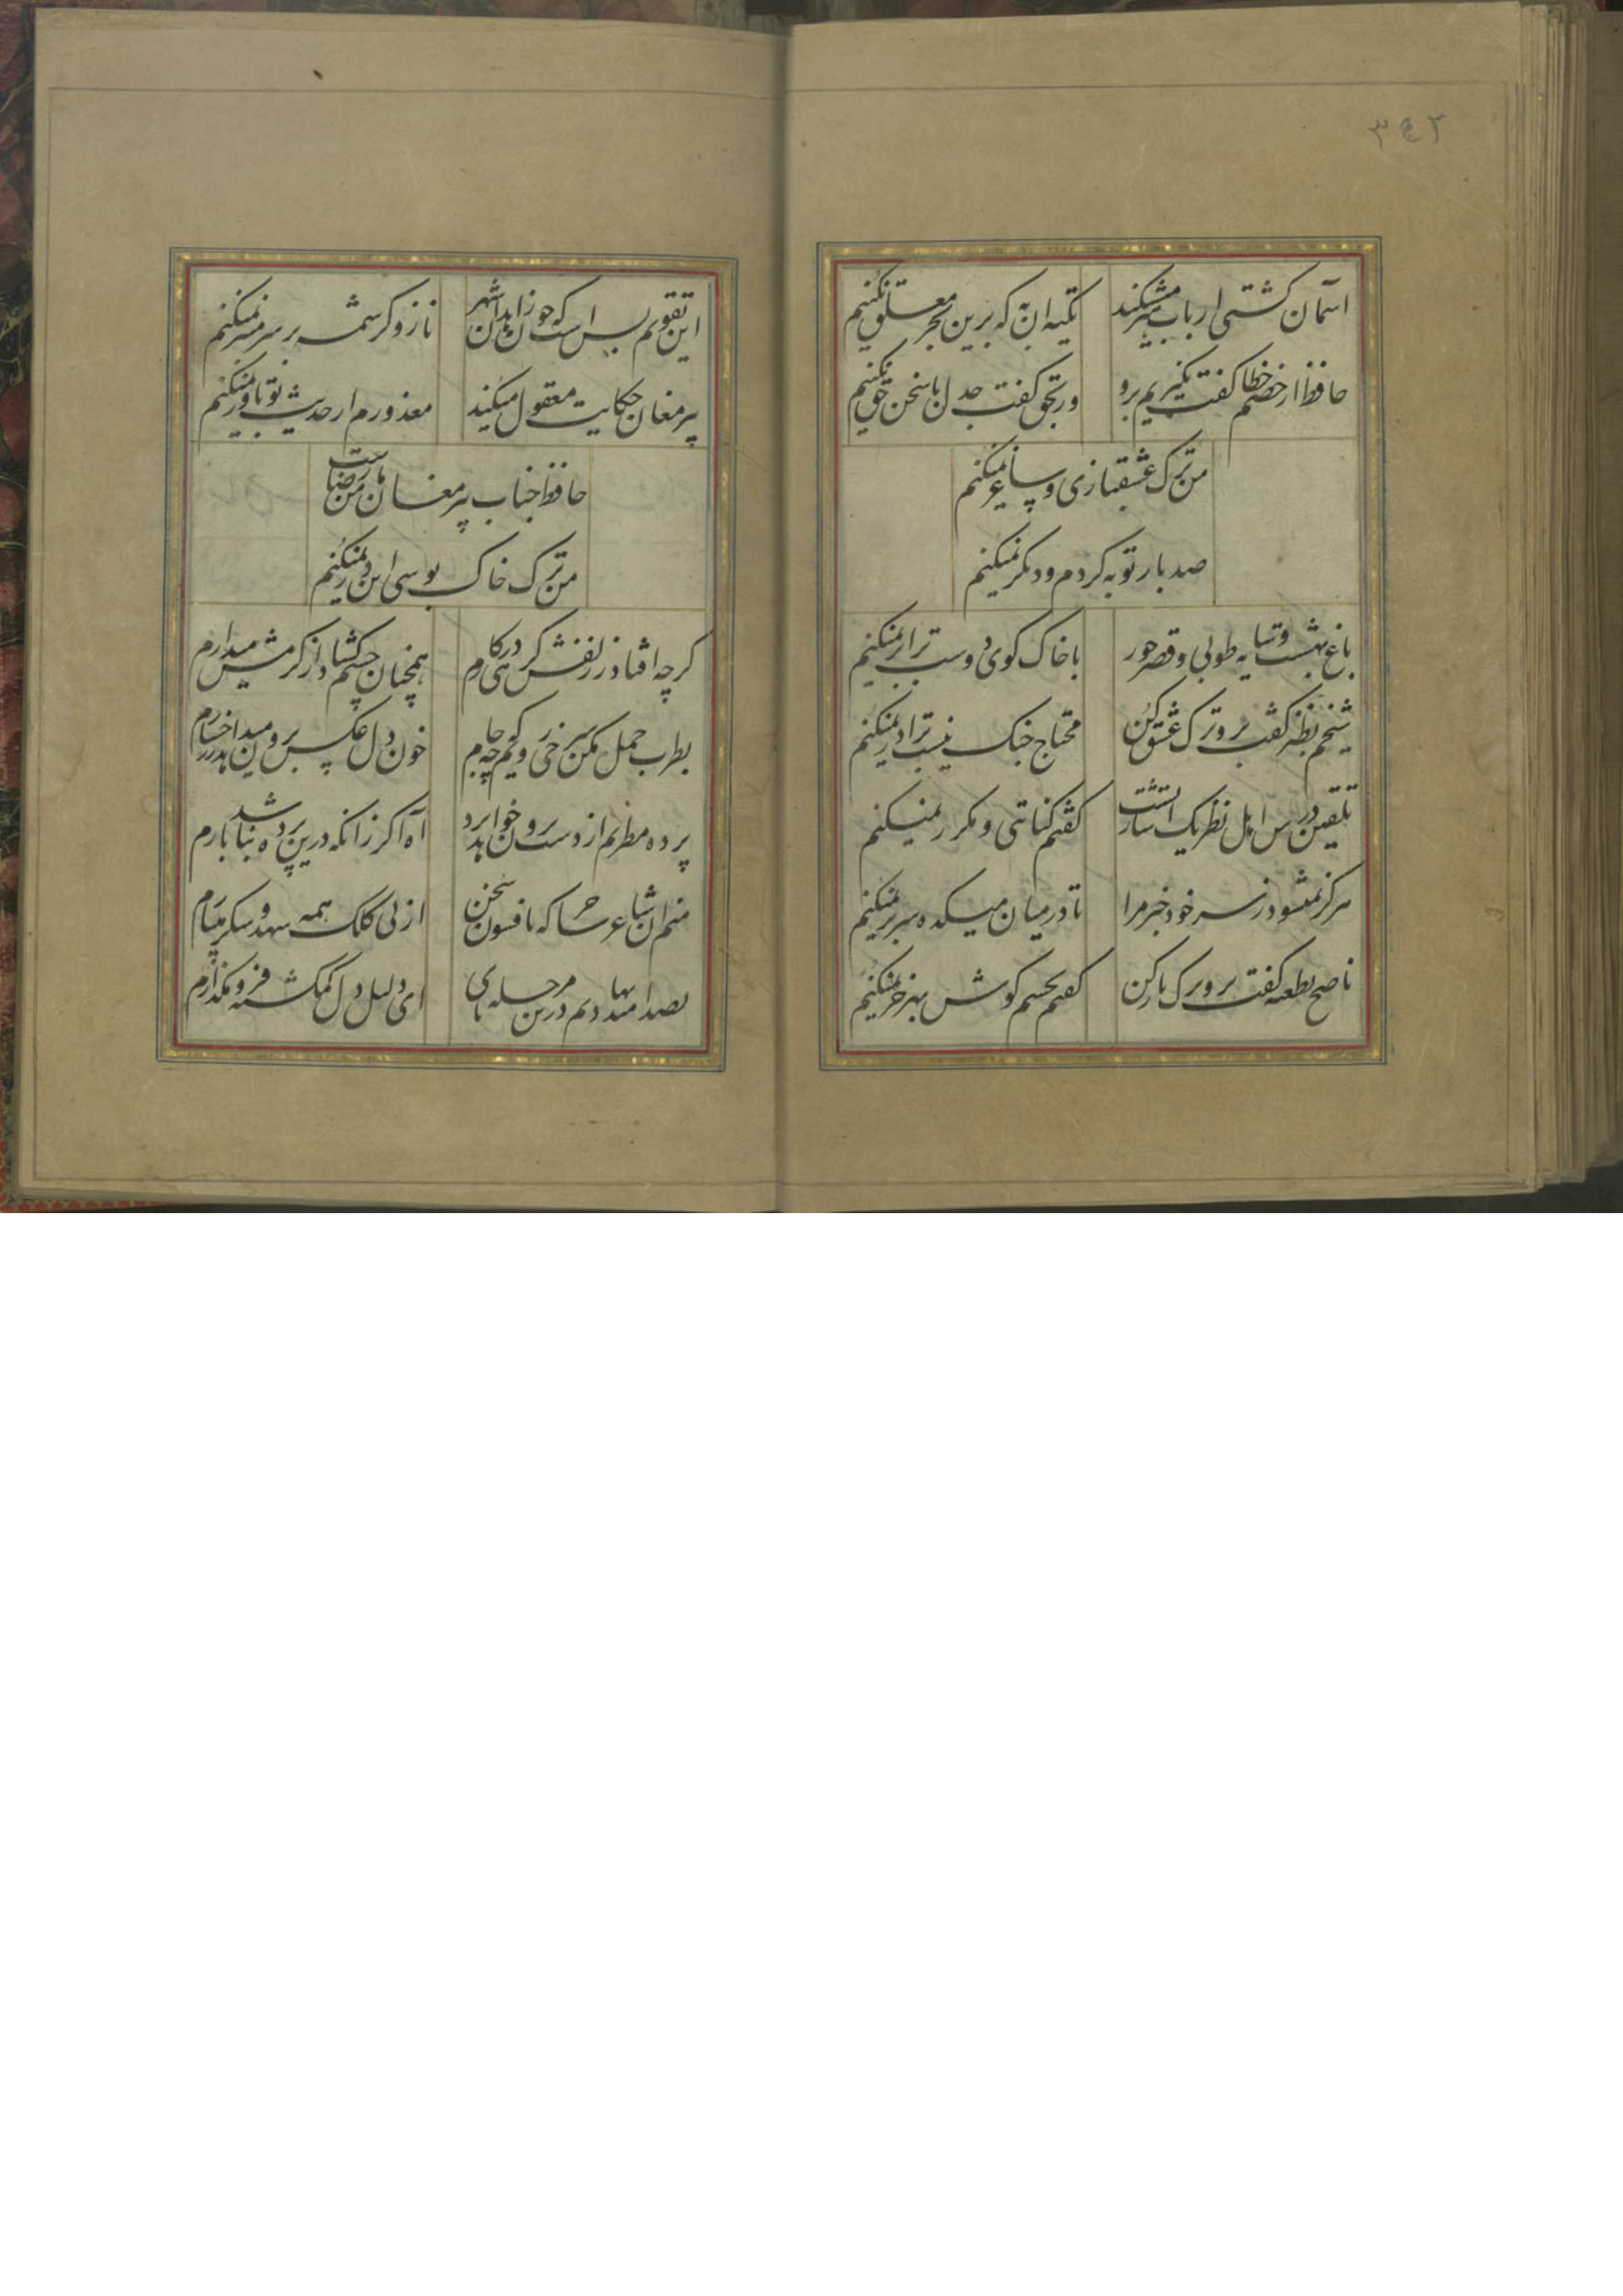 ۳۴۲
آسمان کشتی ارباب هنر میشکند تکیه آن به که برین بحر معلق نکنیم
حافظ ار خصم خطا گفت نگیریم برو ور بحق گفت جدل با سخن حق نکنیم
من ترک عشقبازی و ساغر نمیکنم
صد بار توبه کردم و دیگر نمیکنم
باغ بهشت و سایه طوبی و قصر حور با خاک کوی دوست برابر نمیکنم
شیخم بطنز گفت برو ترک عشق کن محتاج جنگ نیست برادر نمیکنم
تلقین درس اهل نظر یک اشارتست گفتم کنایتی و مکرر نمیکنم
هرگز نمیشود ز سر خود خبر مرا تا در میان میکده سر بر نمیکنم
ناصح بطعنه گفت برو ترک یار کن گفتم بچشم گوش بهر خر نمیکنم
این تقویم بس است که چون زاهدان شهر ناز و کرشمه بر سر منبر نمیکنم
پیر مغان حکایت معقول میکند معذورم ار حدیث تو باور نمیکنم
حافظ جناب پیر مغان مامن رضاست
من ترک خاک بوسی این در نمیکنم
گرچه افتاد ز زلفش گرهی در کارم همچنان چشم گشاد از کرمش میدارم
بطرب حمل مکن سرخی رویم که چو جام خون دل عکس برون میدهد از رخسارم
پرده مطربم از دست برون خواهد برد آه اگر زانکه درین پرده نباشد بارم
منم آن شاعر ساحر که بافسون سخن از نی کلک همه شهد و شکر میبارم
بصد امید نهادیم درین مرحله پای ای دلیل دل گمگشته فرو مگذارم